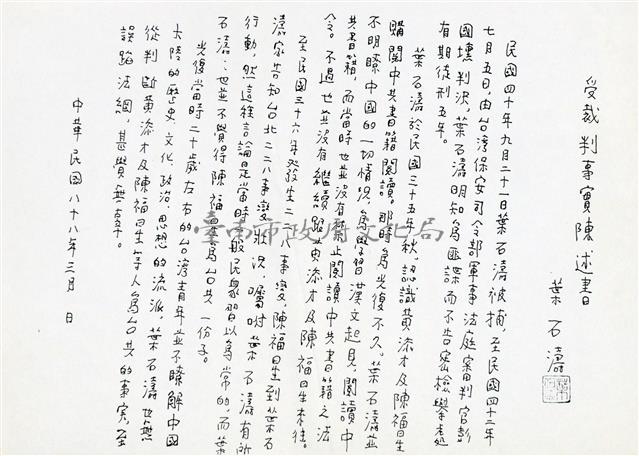 受裁判事實陳述書
葉石濤
民國四十年九月二十一日葉石濤被捕，至民國四十二年
七月五日，由台灣保安司令部軍事法庭審判官彭
國壎判決，葉石濤明知為匪諜而不告密檢舉處
有期徒刑五年。
葉石濤於民國三十五年秋，認識黃添才及陳福生
購閱中共書籍閱讀。那時為光復不久。葉石濤並
不明瞭中國的一切情況，為學習漢文起見，閱讀中
共書籍，而當時也並沒有禁止閱讀中共書籍之法
令。不過也並沒有繼續跟黃添才及陳福生來往。
至民國三十六年發生二二八事變，陳福生到葉石
濤家告知台北二二八事變狀況，囑咐葉石濤有所
行動，然這種言論是當時一般民眾習以為常的，而葉
石濤也並不覺得陳福生為台共一份子。
光復當時二十歲左右的台灣青年並不瞭解中國
大陸的歷史、文化、政治、思想的流派，葉石濤也無
從判斷黃添才及陳福生等人為台共的事實，至
誤蹈法網，甚覺無辜。
中華民國八十八年三月 日
臺南市政府文化局